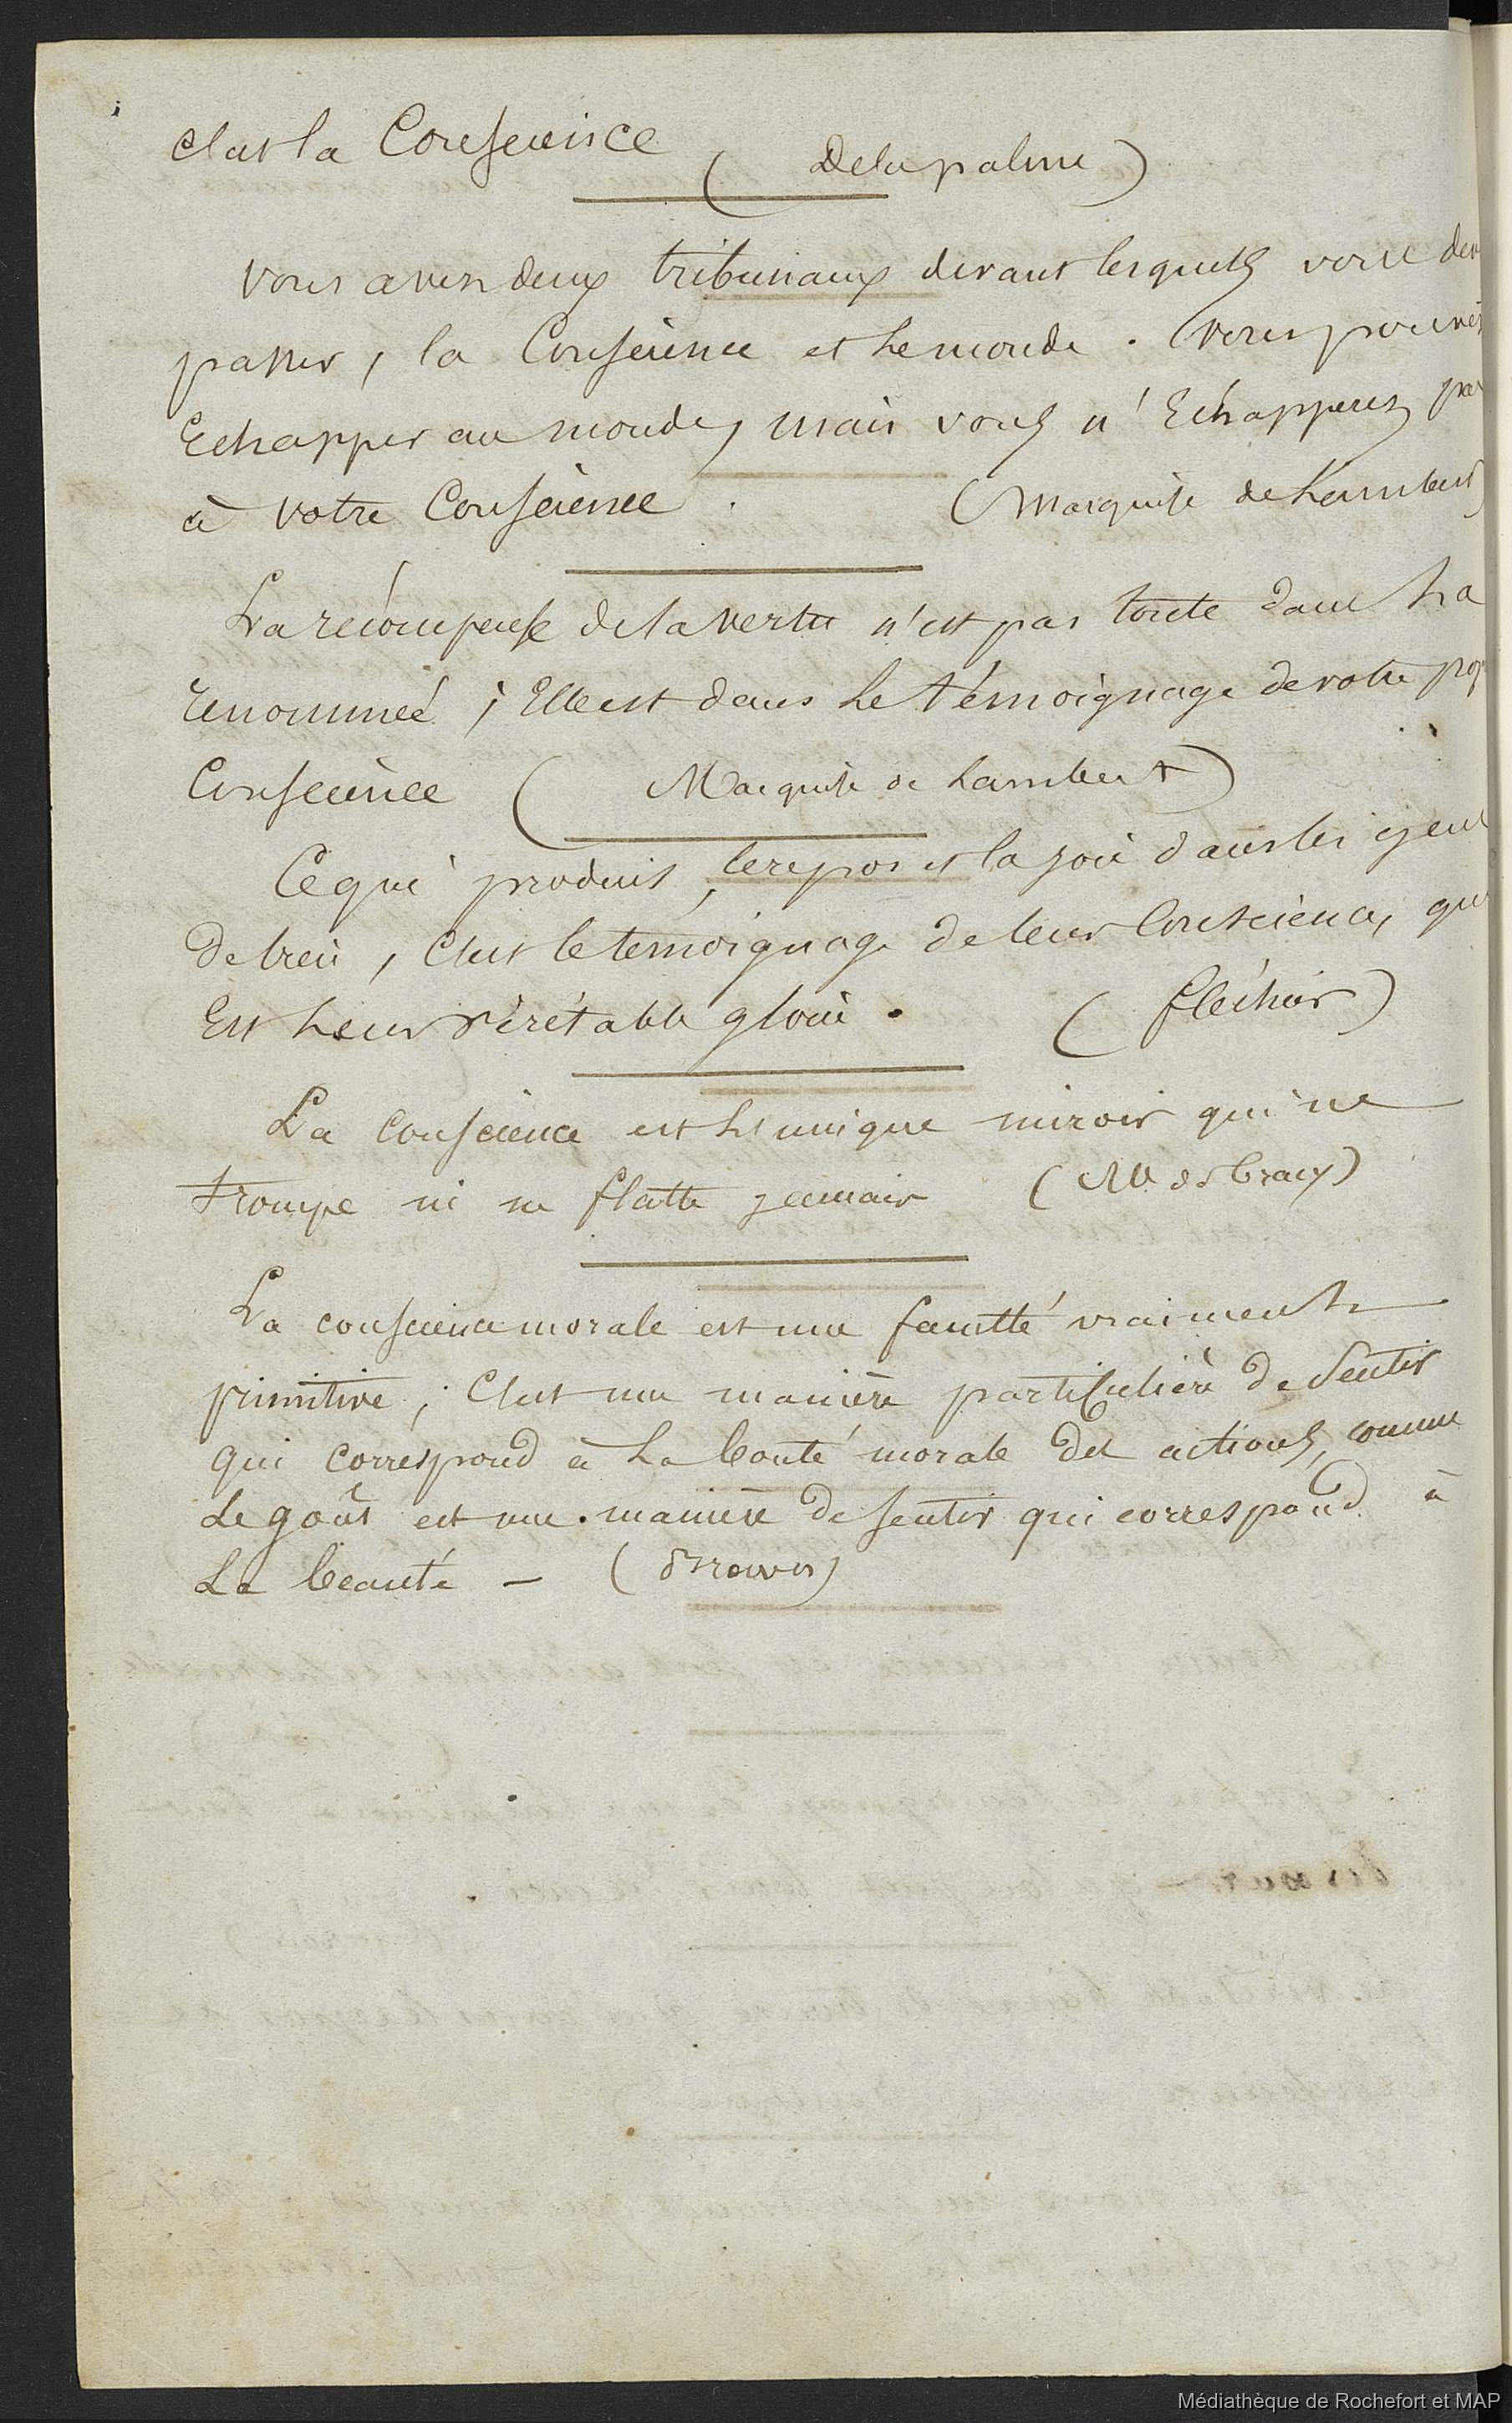 C'est la Conscience
(Delapalme)
Vous avez deux tribunaux devant lesquels vous dev
passer, la Conscience et Le monde. Vous pouvez
Echapper au monde, mais vous n'Echapperez pas
à votre Conscience. (Marquise de Lambert)
La récompense de la vertu n'est pas toute dans La
renommée ; Elle est dans Le témoignage de votre prop
Conscience (Marquise de Lambert)
Ce qui produit, le repos et la joie dans les gens
De bien, C'est le témoignage de leur Conscience, qui
Est Leur véritable gloire. (fléchier)
La conscience est L'unique miroir qui ne
trompe ni ne flatte jamais (de Tracy)
La conscience morale est une faculté vraiment
primitive ; C'est une manière particulière de Sentir
qui correspond à La bonté morale des actions, comme
Le goût est une manière de sentir qui correspond à
La beauté - (Brown)
Médiathèque de Rochefort et MAP